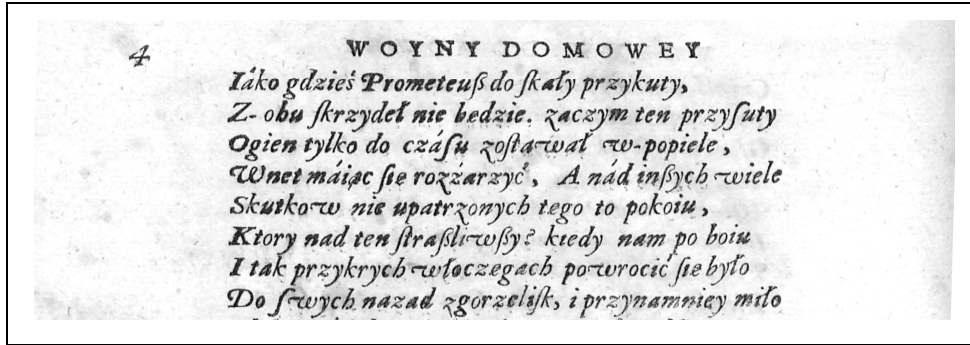 4 WOYNY DOMOWEY
Iáko gdzieś Prometeuß do ſkały przykuty,
Z- obu ſkrzydeł nie bedzie. zaczym ten przyſuty
Ogien tylko do czáſu zoſtawał w-popiele,
Wnet máiąc ſię rozzarzyć, A nád inßych wiele
Skutkow nie upatrzonych tego to pokoiu,
Ktory nad ten ſtraßliwßy? kiedy nam po boiu
I tak przykrych włoczegach powrocić ſie było
Do ſwych nazad zgorzeliſk, i przynamniey miło